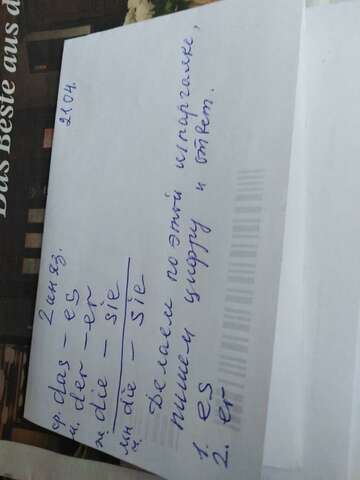 Das Beste aus d
21.04.
2 ин яз.
ср. das - es
м. der - er
ж. die - sie
мн ч. die - sie
Делаем по этой шпаргалке,
пишем цифру и ответ.
1. es
2. er